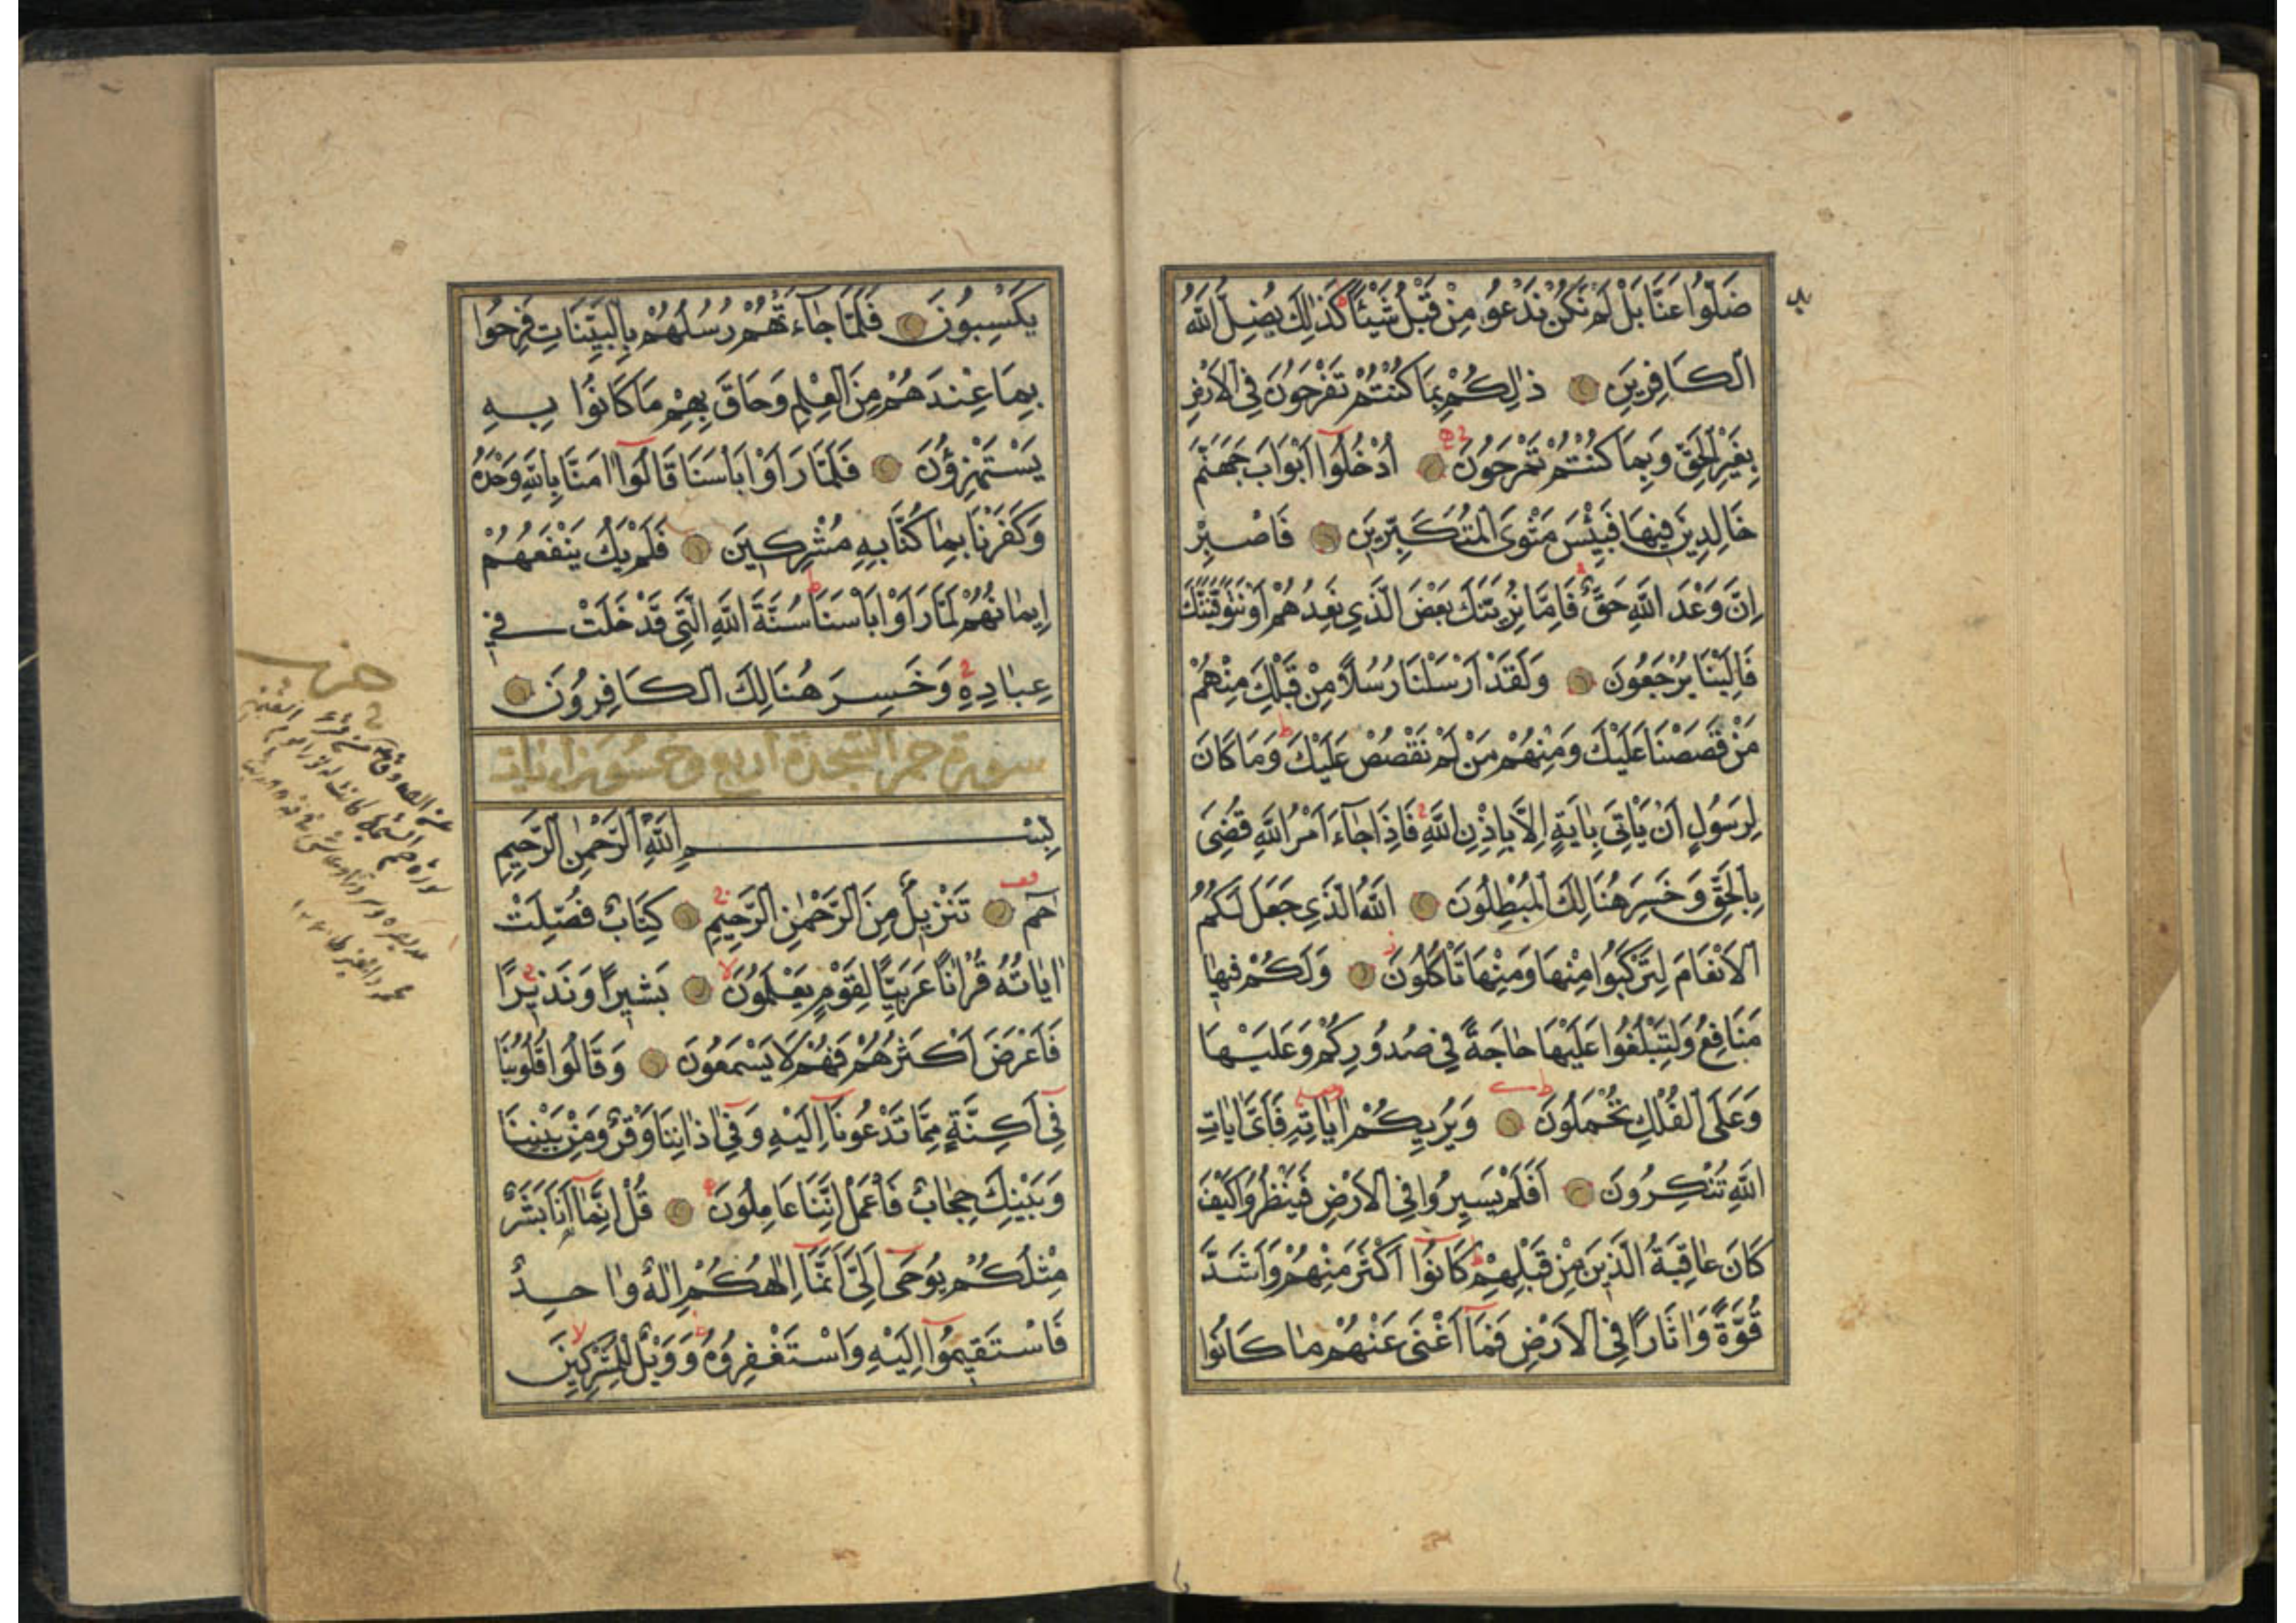 ضَلُّوا عَنَّا بَلْ لَمْ نَكُنْ نَدْعُو مِنْ قَبْلُ شَيْئًا كَذٰلِكَ يُضِلُّ اللّٰهُ
الْكَافِرِينَ ذٰلِكُمْ بِمَا كُنْتُمْ تَفْرَحُونَ فِي الْاَرْضِ
بِغَيْرِ الْحَقِّ وَبِمَا كُنْتُمْ تَمْرَحُونَ اُدْخُلُوا اَبْوَابَ جَهَنَّمَ
خَالِدِينَ فِيهَا فَبِئْسَ مَثْوَى الْمُتَكَبِّرِينَ فَاصْبِرْ
اِنَّ وَعْدَ اللّٰهِ حَقٌّ فَاِمَّا نُرِيَنَّكَ بَعْضَ الَّذِي نَعِدُهُمْ اَوْ نَتَوَفَّيَنَّكَ
فَاِلَيْنَا يُرْجَعُونَ وَلَقَدْ اَرْسَلْنَا رُسُلًا مِنْ قَبْلِكَ مِنْهُمْ
مَنْ قَصَصْنَا عَلَيْكَ وَمِنْهُمْ مَنْ لَمْ نَقْصُصْ عَلَيْكَ وَمَا كَانَ
لِرَسُولٍ اَنْ يَاْتِيَ بِاٰيَةٍ اِلَّا بِاِذْنِ اللّٰهِ فَاِذَا جَاءَ اَمْرُ اللّٰهِ قُضِيَ
بِالْحَقِّ وَخَسِرَ هُنَالِكَ الْمُبْطِلُونَ اَللّٰهُ الَّذِي جَعَلَ لَكُمُ
الْاَنْعَامَ لِتَرْكَبُوا مِنْهَا وَمِنْهَا تَاْكُلُونَ وَلَكُمْ فِيهَا
مَنَافِعُ وَلِتَبْلُغُوا عَلَيْهَا حَاجَةً فِي صُدُورِكُمْ وَعَلَيْهَا
وَعَلَى الْفُلْكِ تُحْمَلُونَ وَيُرِيكُمْ اٰيَاتِهِ فَاَيَّ اٰيَاتِ
اللّٰهِ تُنْكِرُونَ اَفَلَمْ يَسِيرُوا فِي الْاَرْضِ فَيَنْظُرُوا كَيْفَ
كَانَ عَاقِبَةُ الَّذِينَ مِنْ قَبْلِهِمْ كَانُوا اَكْثَرَ مِنْهُمْ وَاَشَدَّ
قُوَّةً وَاٰثَارًا فِي الْاَرْضِ فَمَا اَغْنٰى عَنْهُمْ مَا كَانُوا
يَكْسِبُونَ فَلَمَّا جَاءَتْهُمْ رُسُلُهُمْ بِالْبَيِّنَاتِ فَرِحُوا
بِمَا عِنْدَهُمْ مِنَ الْعِلْمِ وَحَاقَ بِهِمْ مَا كَانُوا بِهِ
يَسْتَهْزِؤُنَ فَلَمَّا رَاَوْا بَاْسَنَا قَالُوا اٰمَنَّا بِاللّٰهِ وَحْدَهُ
وَكَفَرْنَا بِمَا كُنَّا بِهِ مُشْرِكِينَ فَلَمْ يَكُ يَنْفَعُهُمْ
اِيمَانُهُمْ لَمَّا رَاَوْا بَاْسَنَا سُنَّةَ اللّٰهِ الَّتِي قَدْ خَلَتْ فِي
عِبَادِهِ وَخَسِرَ هُنَالِكَ الْكَافِرُونَ
سورة حم السجدة اربع وخمسون اٰيات
بِسْمِ اللّٰهِ الرَّحْمٰنِ الرَّحِيمِ
حٰمٓ تَنْزِيلٌ مِنَ الرَّحْمٰنِ الرَّحِيمِ كِتَابٌ فُصِّلَتْ
اٰيَاتُهُ قُرْاٰنًا عَرَبِيًّا لِقَوْمٍ يَعْلَمُونَ بَشِيرًا وَنَذِيرًا
فَاَعْرَضَ اَكْثَرُهُمْ فَهُمْ لَا يَسْمَعُونَ وَقَالُوا قُلُوبُنَا
فِي اَكِنَّةٍ مِمَّا تَدْعُونَا اِلَيْهِ وَفِي اٰذَانِنَا وَقْرٌ وَمِنْ بَيْنِنَا
وَبَيْنِكَ حِجَابٌ فَاعْمَلْ اِنَّنَا عَامِلُونَ قُلْ اِنَّمَا اَنَا بَشَرٌ
مِثْلُكُمْ يُوحٰى اِلَيَّ اَنَّمَا اِلٰهُكُمْ اِلٰهٌ وَاحِدٌ
فَاسْتَقِيمُوا اِلَيْهِ وَاسْتَغْفِرُوهُ وَوَيْلٌ لِلْمُشْرِكِينَ